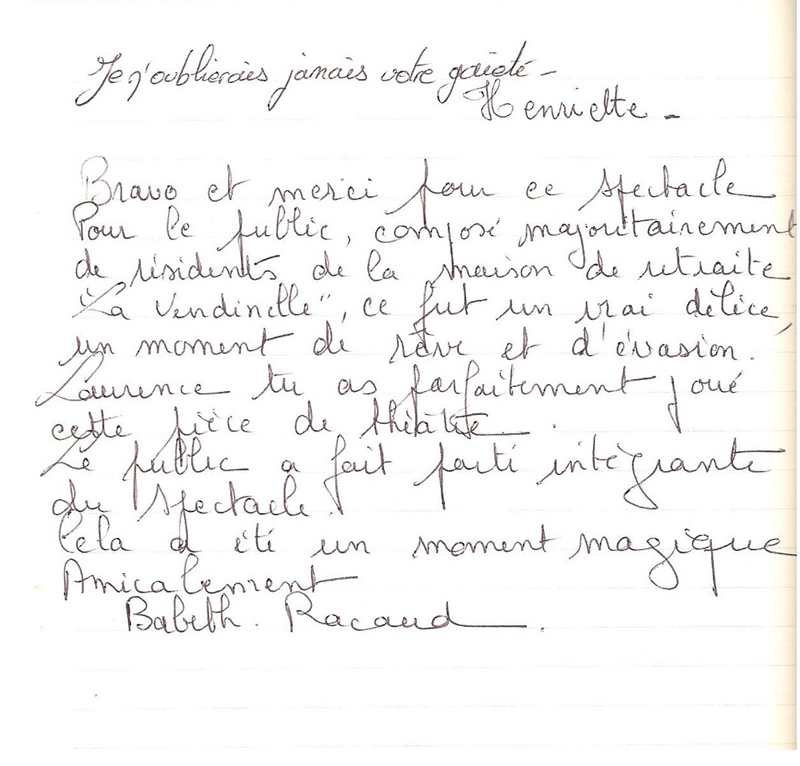 Je n'oublierais jamais votre gaieté -
Henriette -
Bravo et merci pour ce spectacle
Pour le public, composé majoritairement
de résidents de la maison de retraite
"La Vendinelle", ce fut un vrai délice,
un moment de rêve et d'évasion.
Laurence tu as parfaitement joué
cette pièce de théâtre.
Le public a fait parti intégrante
du spectacle.
Cela a été un moment magique
Amicalement
Babeth. Racaud.